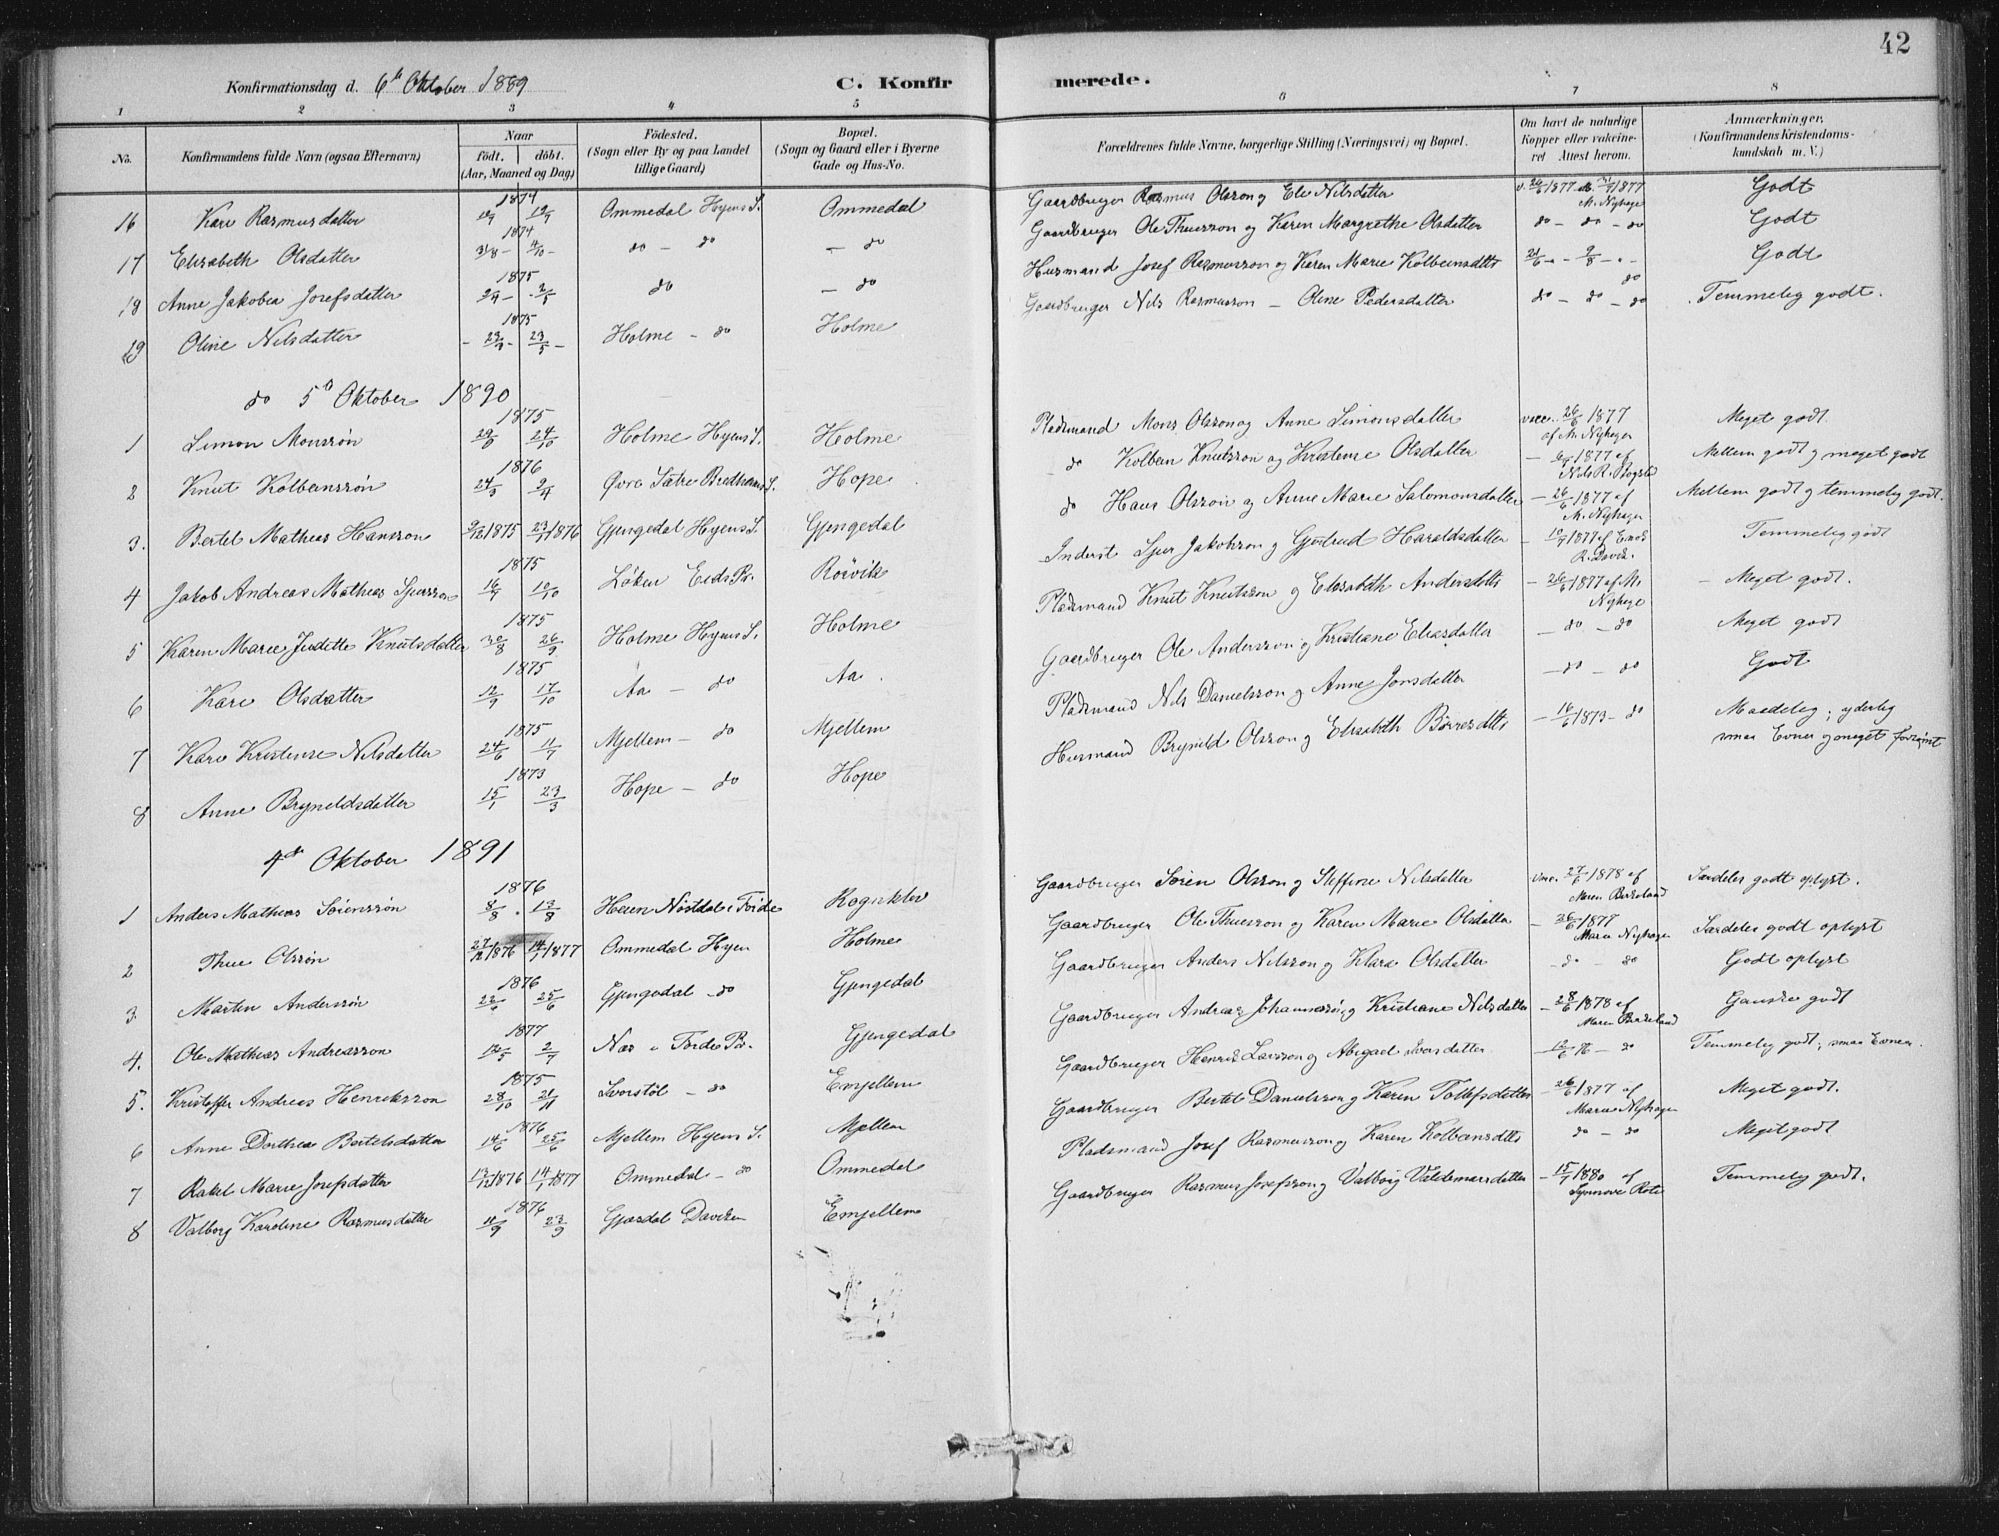 42
Konfirmationsdag d. 6te Oktober 1889 C. Konfirmerede.
1 2 3 4 5 6 7 8
No. Konfirmandens fulde Navn (ogsaa Efternavn) Naar födt. döbt. (Aar, Maaned og Dag) Födested. (Sogn eller By og paa Landet tillige Gaard) Bopæl. (Sogn og Gaard eller i Byerne Gade og Hus-No. Forældrenes fulde Navne, borgerlige Stilling (Næringsvei) og Bopæl. Om havt de naturlige Kopper eller vakcineret Attest herom. Anmærkninger. (Konfirmandens Kristendomskundskab m. V.)
16 Kari Rasmusdatter 1874 Ommedal Hyens S. Ommedal Gaardbruger Rasmus Olsson og Eli Nilsdatter v. 26/6 1877 1877 M. Nyhage Godt
17 Elisabeth Olsdatter 1874 31/8 - 4/10 - do - do - do Gaardbruger Ole Thuesson og Karen Margrethe Olsdatter do - do - do Godt
18 Anne Jakobea Josefsdatter 1875 do - do Husmand Josef Rasmusson og Karen Marie Kolbeinsdtts Godt
19 Oline Nilsdatter 1875 23/5 - Holme - do Holme Gaardbruger Nils Rasmusson - Oline Pedersdatter do - do - do Temmelig godt.
do 5te Oktober 1890
1 Simon Monssøn 1875 24/10 Holme Hyens S. Holme Pladsmand Mons Olsson og Anne Simonsdatter vacc. 26/6 1877 af M. Nyhagen Meget godt.
2 Knut Kolbeinssøn 1876 24/3 2/4 Øvre Sætre Bredheims S. Hope do Kolbein Knutsson og Kristense Olsdatter 1877 af Nils R. Mellem godt og meget godt
3. Bertel Mathias Hansson 9/12 1875 23/1 1876 Gjengedal Hyens S. Gjengedal do Hans Olsson og Anne Marie Salomonsdatter - 26/6 1877 af M. Nyhagen Mellem godt og temmelig godt.
4 Jakob Andreas Mathias Sjursson 1875 16/9 10/10 Løken Eids Pr. Roivik Inderst Sjur Jakobson og Gjertrud Haraldsdatter 1877 af R. David. Temmelig godt
5 Karen Marie Juditte Knutsdatter 1875 30/8 26/9 Holme Hyens S. Holme Pladsmand Knut Knutsson og Elisabeth Andersdtts - 26/6 1877 af M. Nyhage - Meget godt.
6 Kari Olsdatter 1875 12/9 17/10 Aa - do Aa. Gaardbruger Ole Andersson og Kristiane Eliasdatter - do - do Meget godt
7 Kari Kristense Nilsdatter 1875 24/6 11/7 Mjellem - do Mjellem Pladsmand Nils Danielsson og Anne Jonsdatter - do - do Godt
8 Anne Bryneldsdatter 1873 15/1 23/3 Hope - do Hope Husmand Bryneld Olsson og Elisabeth Børresdtts - 16/6 1873 - do Maadelig; yderlig smaa Evner og meget forsømt
4de Oktober 1891
1 Anders Mathias Sørenssøn 1876 8/8 . 13/8 Heien Nøstdal i Førde Gaardbruger Søren Olsson og Steffine Nilsdatter vac. 27/6 1878 af Maren Særdeles godt oplyst.
2 Thue Olssøn 27/12 1876 14/1 1877 Ommedal Hyen Holme Gaardbruger Ole Thuesson og Karen Marie Olsdatter - 26/6 1877 Maren Nyhagen Særdeles godt oplyst
3. Martin Anderssøn 1876 25/6 Gjengedal - do Gjengedal Gaardbruger Anders Nilsson og Klara Olsdatter - do - do Godt oplyst
4. Ole Mathias Andreasson 1877 12/5 2/7 Nær i Førde Pr. Gjengedal Gaardbruger Andreas Johannessøn og Kristiane Nilsdatter - 28/6 1878 af Maren Ganske godt
5. Kristoffer Andreas Henriksson 1875 28/10 21/11 - do Emjellem Gaardbruger Henrik Larsson og Abigael Iversdatter - 12/6 76 - do Temmelig godt; smaa Evner.
6 Anne Dorthea Bertelsdatter 1876 14/6 25/6 Mjellem Hyens S. Mjellem Gaardbruger Bertel Danielsson og Karen Tollefsdatter - 26/6 1877 af Maren Nyhagen Meget godt.
7 Rakel Marie Josefsdatter 13/12 1876 14/1 1877 Ommedal - do Ommedal Pladsmand Josef Rasmusson og Karen Kolbeinsdtts do - do Meget godt
8 Valborg Karoline Rasmusdatter 1876 11/9 23/9 Gjæsdal Daviken Emjellem Gaardbruger Rasmus Josefsson og Valborg Valdemarsdatter - 15/7 1880 af Synnøve Rote Temmelig godt.